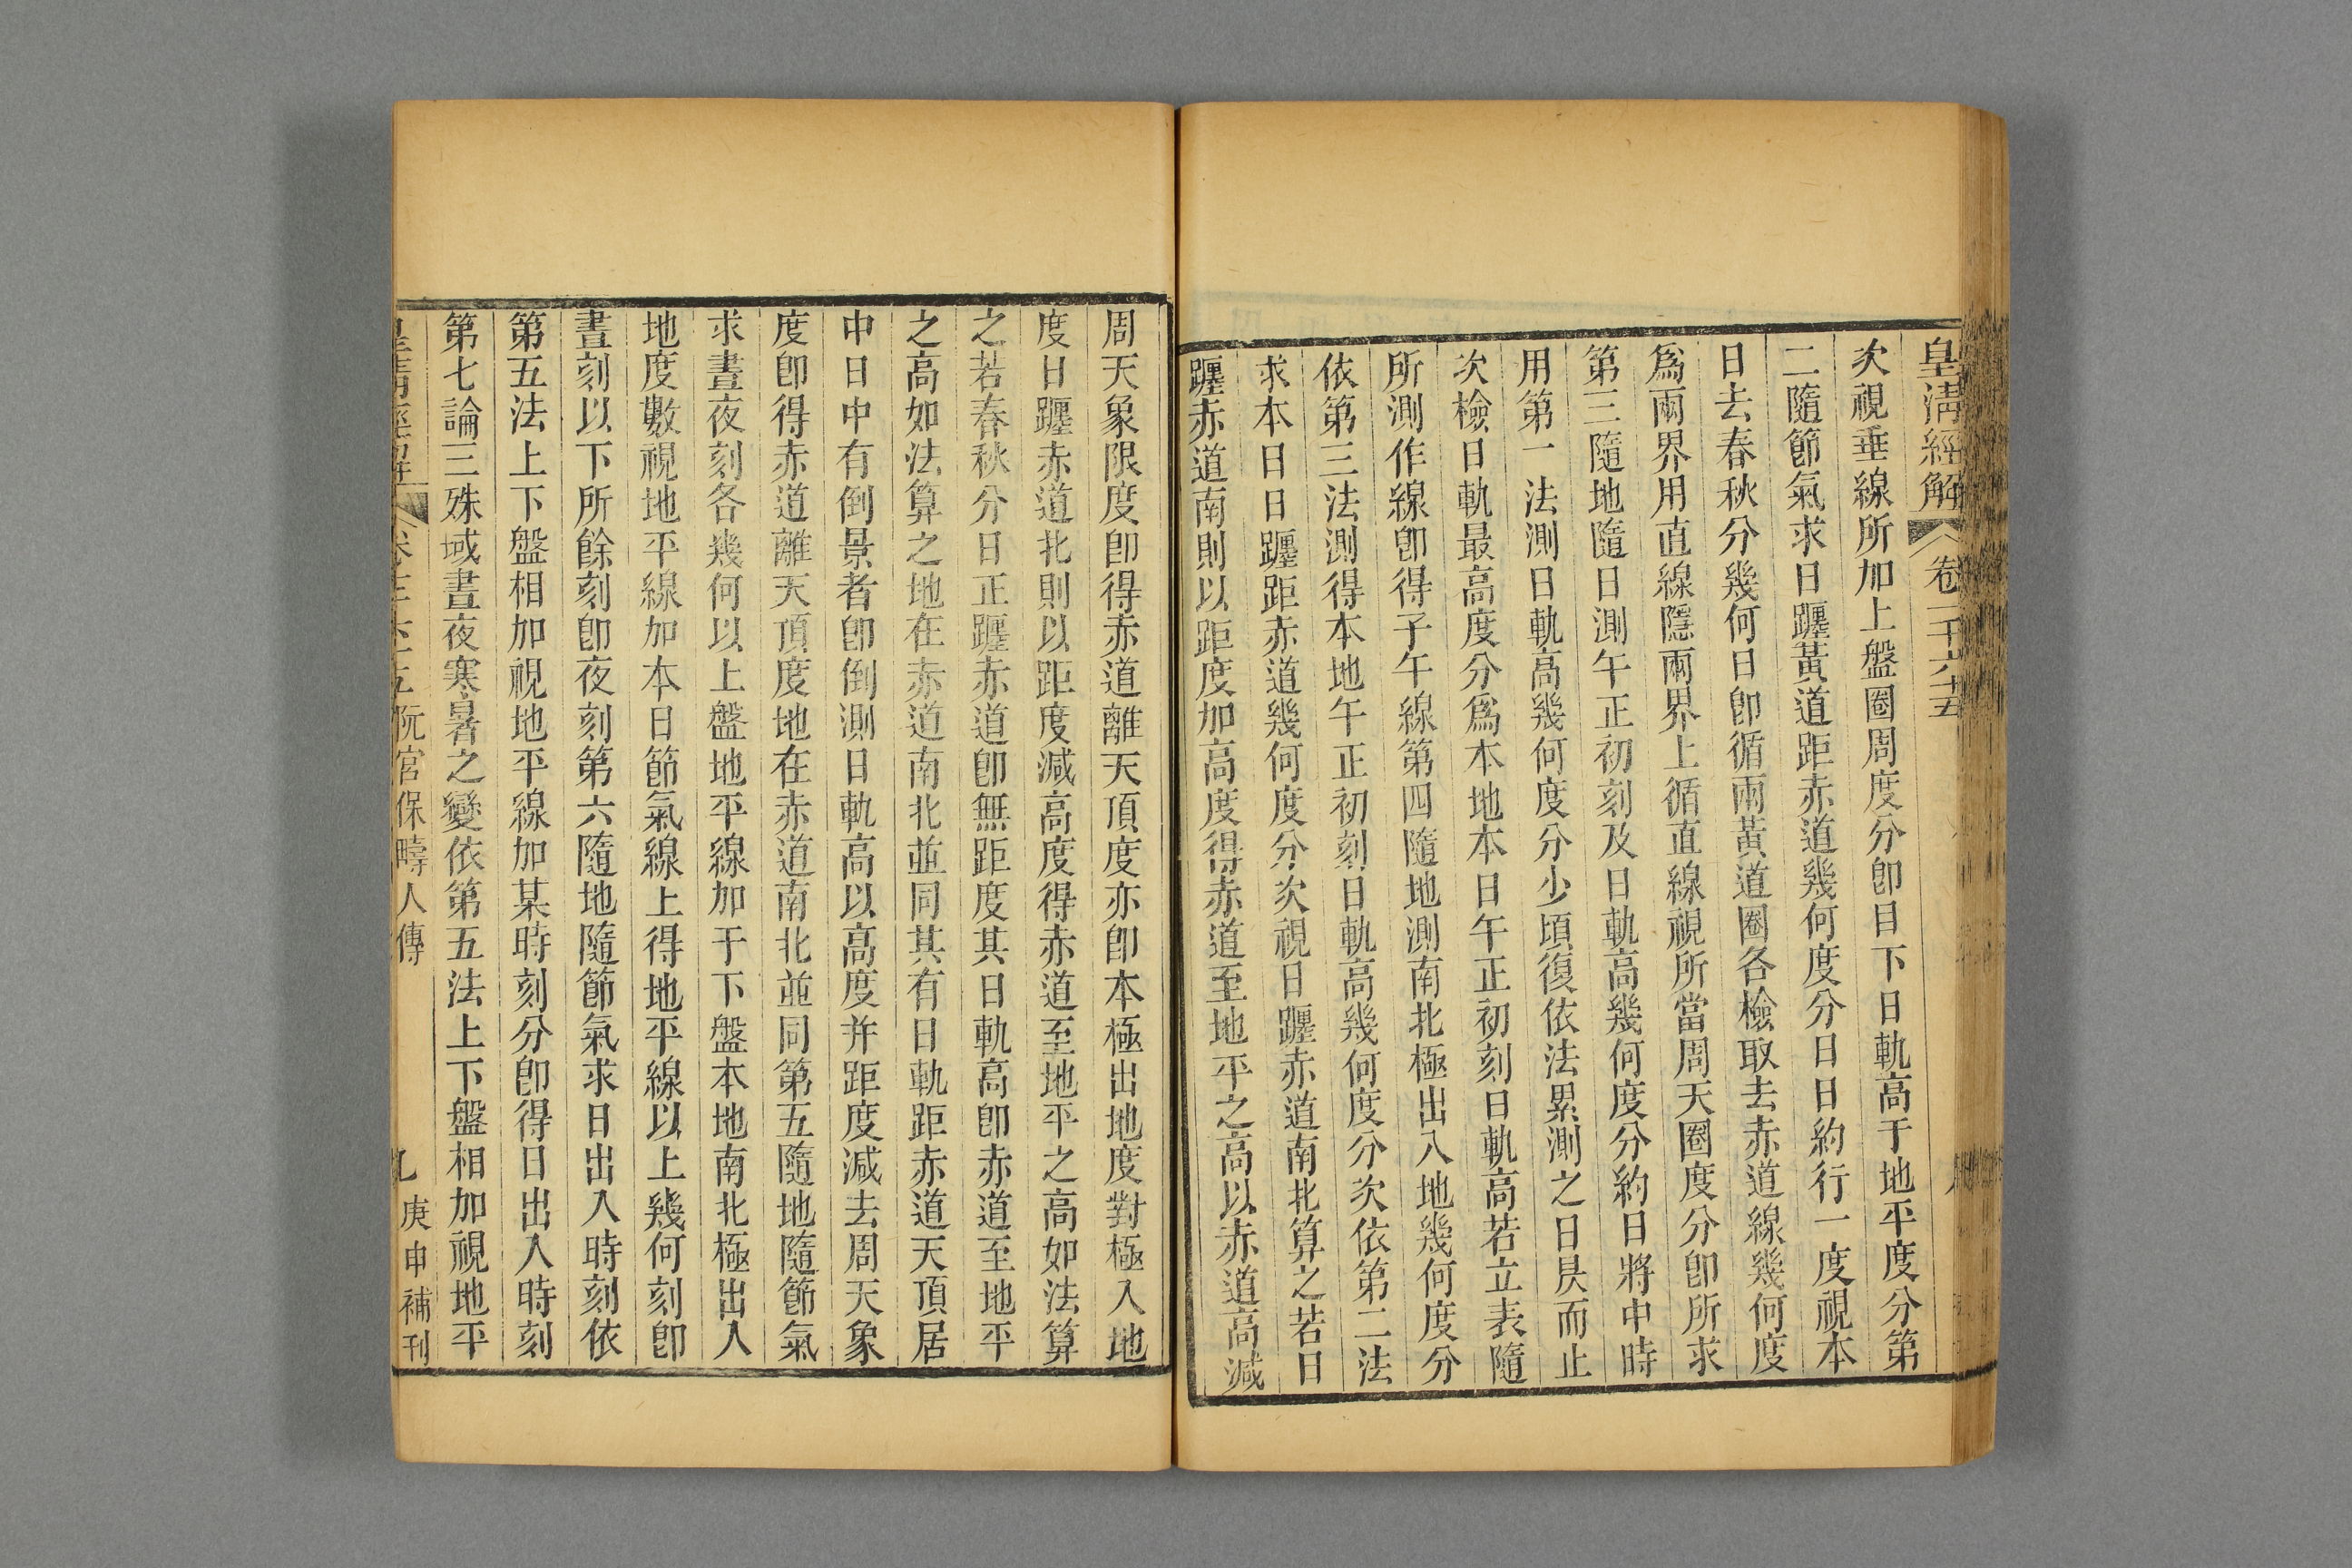 皇淸經解 卷一千六十五
次視垂線所加上盤圈周度分卽目下日軌高于地平度分第
二隨節氣求日躔黃道距赤道幾何度分日日約行一度視本
日去春秋分幾何日卽循兩黃道圈各檢取去赤道線幾何度
爲兩界用直線隱兩界上循直線視所當周天圈度分卽所求
第三隨地隨日測午正初刻及日軌高幾何度分約日將中時
用第一法測日軌高幾何度分少頃復依法累測之日昃而止
次檢日軌最高度分爲本地本日午正初刻日軌高若立表隨
所測作線卽得子午線第四隨地測南北極出入地幾何度分
依第三法測得本地午正初刻日軌高幾何度分次依第二法
求本日日躔距赤道幾何度分次視日躔赤道南北算之若日
躔赤道南則以距度加高度得赤道至地平之高以赤道高減
周天象限度卽得赤道離天頂度亦卽本極出地度對極入地
度日躔赤道北則以距度減高度得赤道至地平之高如法算
之若春秋分日正躔赤道卽無距度其日軌高卽赤道至地平
之高如法算之地在赤道南北並同其有日軌距赤道天頂居
中日中有倒景者卽倒測日軌高以高度并距度減去周天象
度卽得赤道離天頂度地在赤道南北並同第五隨地隨節氣
求晝夜刻各幾何以上盤地平線加于下盤本地南北極出入
地度數視地平線加本日節氣線上得地平線以上幾何刻卽
晝刻以下所餘刻卽夜刻第六隨地隨節氣求日出入時刻依
第五法上下盤相加視地平線加某時刻分卽得日出入時刻
第七論三殊域晝夜寒暑之變依第五法上下盤相加視地平
阮宮保疇人傳 九 庚申補刊